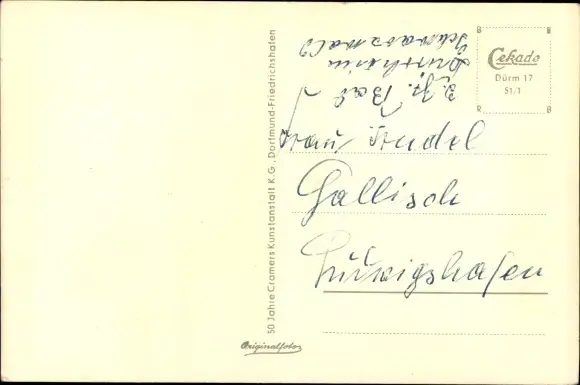 50 Jahre Cramers Kunstanstalt K.G., Dortmund-Friedrichshafen
Originalfoto
Cekade
Dürrm 17
51/1
z. Zt. Bad
Schwarzwald
Frau Trudel
Gallisch
Ludwigshafen